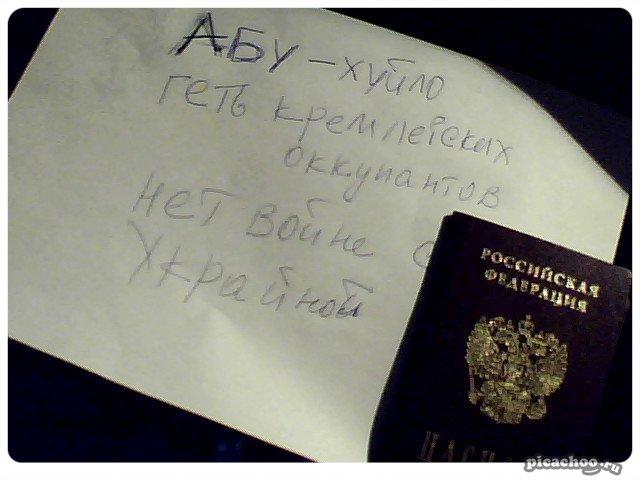 АБУ – хуйло
геть кремлейских
оккупантов
Нет войне с
Украйной
РОССИЙСКАЯ
ФЕДЕРАЦИЯ
picachoo.ru